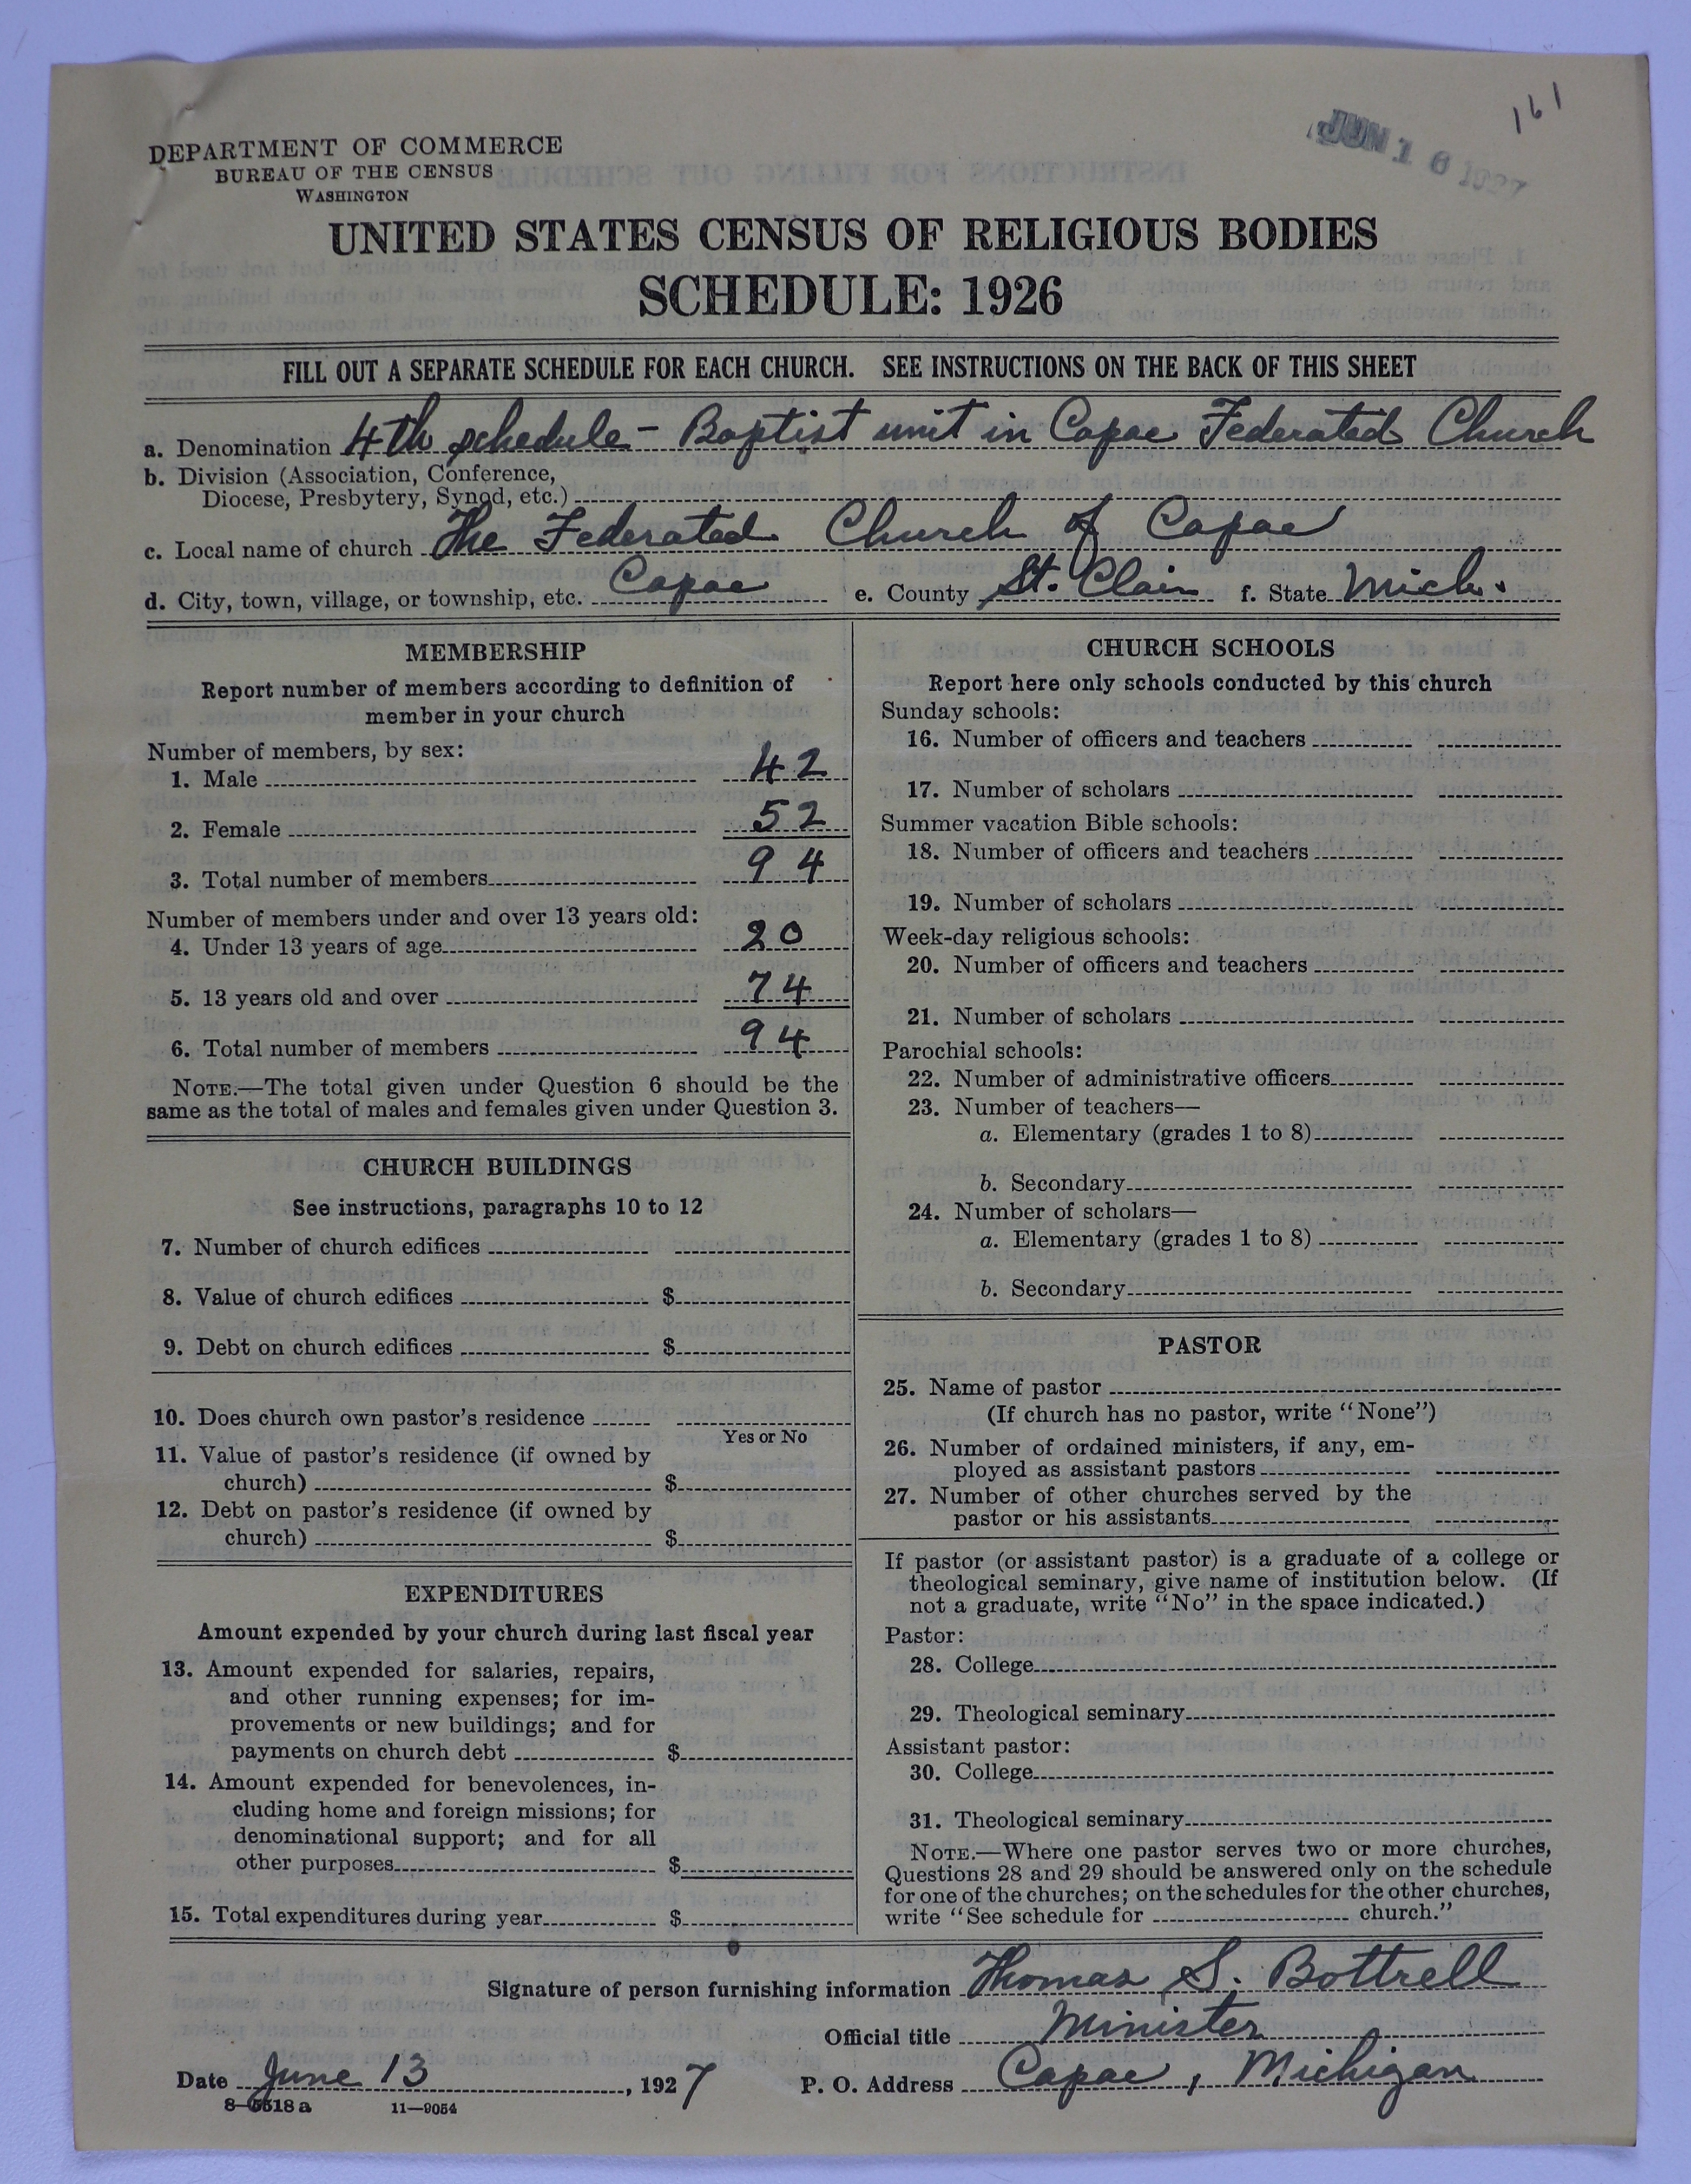 161
JUN 16 1927
DEPARTMENT OF COMMERCE
BUREAU OF THE CENSUS
WASHINGTON
UNITED STATES CENSUS OF RELIGIOUS BODIES
SCHEDULE: 1926
FILL OUT A SEPARATE SCHEDULE FOR EACH CHURCH. SEE INSTRUCTIONS ON THE BACK OF THIS SHEET
a. Denomination 4th schedule - Baptist unit in Capac Federated Church
b. Division (Association, Conference,
Diocese, Presbytery, Synod, etc.)
c. Local name of church The Federated Church of Capac
d. City, town, village, or township, etc. Capac e. County St. Clair f. State Mich.
MEMBERSHIP
Report number of members according to definition of
member in your church
Number of members, by sex:
1. Male 42
2. Female 52
3. Total number of members 94
Number of members under and over 13 years old:
4. Under 13 years of age 20
5. 13 years old and over 74
6. Total number of members 94
NOTE.—The total given under Question 6 should be the
same as the total of males and females given under Question 3.
CHURCH BUILDINGS
See instructions, paragraphs 10 to 12
7. Number of church edifices
8. Value of church edifices $
9. Debt on church edifices $
10. Does church own pastor's residence
Yes or No
11. Value of pastor's residence (if owned by
church) $
12. Debt on pastor's residence (if owned by
church) $
EXPENDITURES
Amount expended by your church during last fiscal year
13. Amount expended for salaries, repairs,
and other running expenses; for im-
provements or new buildings; and for
payments on church debt $
14. Amount expended for benevolences, in-
cluding home and foreign missions; for
denominational support; and for all
other purposes $
15. Total expenditures during year $
CHURCH SCHOOLS
Report here only schools conducted by this church
Sunday schools:
16. Number of officers and teachers
17. Number of scholars
Summer vacation Bible schools:
18. Number of officers and teachers
19. Number of scholars
Week-day religious schools:
20. Number of officers and teachers
21. Number of scholars
Parochial schools:
22. Number of administrative officers
23. Number of teachers—
a. Elementary (grades 1 to 8)
b. Secondary
24. Number of scholars—
a. Elementary (grades 1 to 8)
b. Secondary
PASTOR
25. Name of pastor
(If church has no pastor, write "None")
26. Number of ordained ministers, if any, em-
ployed as assistant pastors
27. Number of other churches served by the
pastor or his assistants
If pastor (or assistant pastor) is a graduate of a college or
theological seminary, give name of institution below. (If
not a graduate, write "No" in the space indicated.)
Pastor:
28. College
29. Theological seminary
Assistant pastor:
30. College
31. Theological seminary
NOTE.—Where one pastor serves two or more churches,
Questions 28 and 29 should be answered only on the schedule
for one of the churches; on the schedules for the other churches,
write "See schedule for church."
Signature of person furnishing information Thomas S. Bottrell
Official title Minister
Date June 13, 1927 P. O. Address Capac, Michigan
11—9054